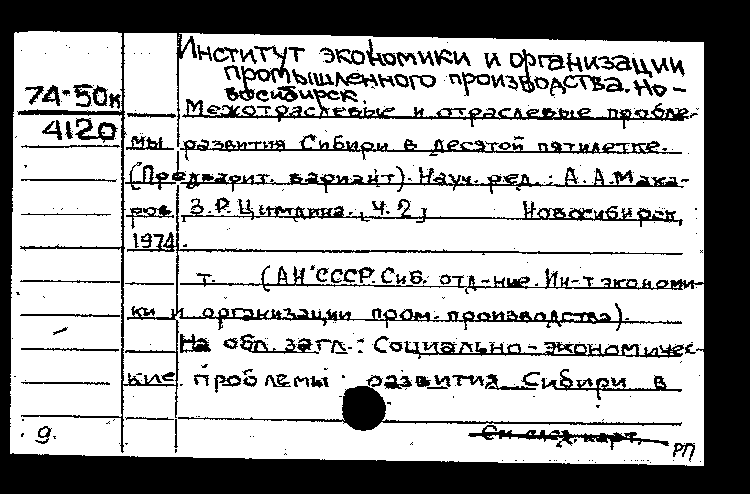 Институт экономики и организации
промышленного производства. Но-
восибирск.
74-50к
4120
Межотраслевые и отраслевые пробле-
мы развития Сибири в десятой пятилетке.
(Предварит. вариант). Науч. ред.: А. А. Мака-
ров, З. Р. Цимдина., Ч. 2, Новосибирск,
1974.
т. (АН СССР. Сиб. отд-ние. Ин-т экономи-
ки и организации пром. производства).
На обл. загл.: Социально-экономичес-
кие проблемы развития Сибири в
См. след. карт.
9.
РП